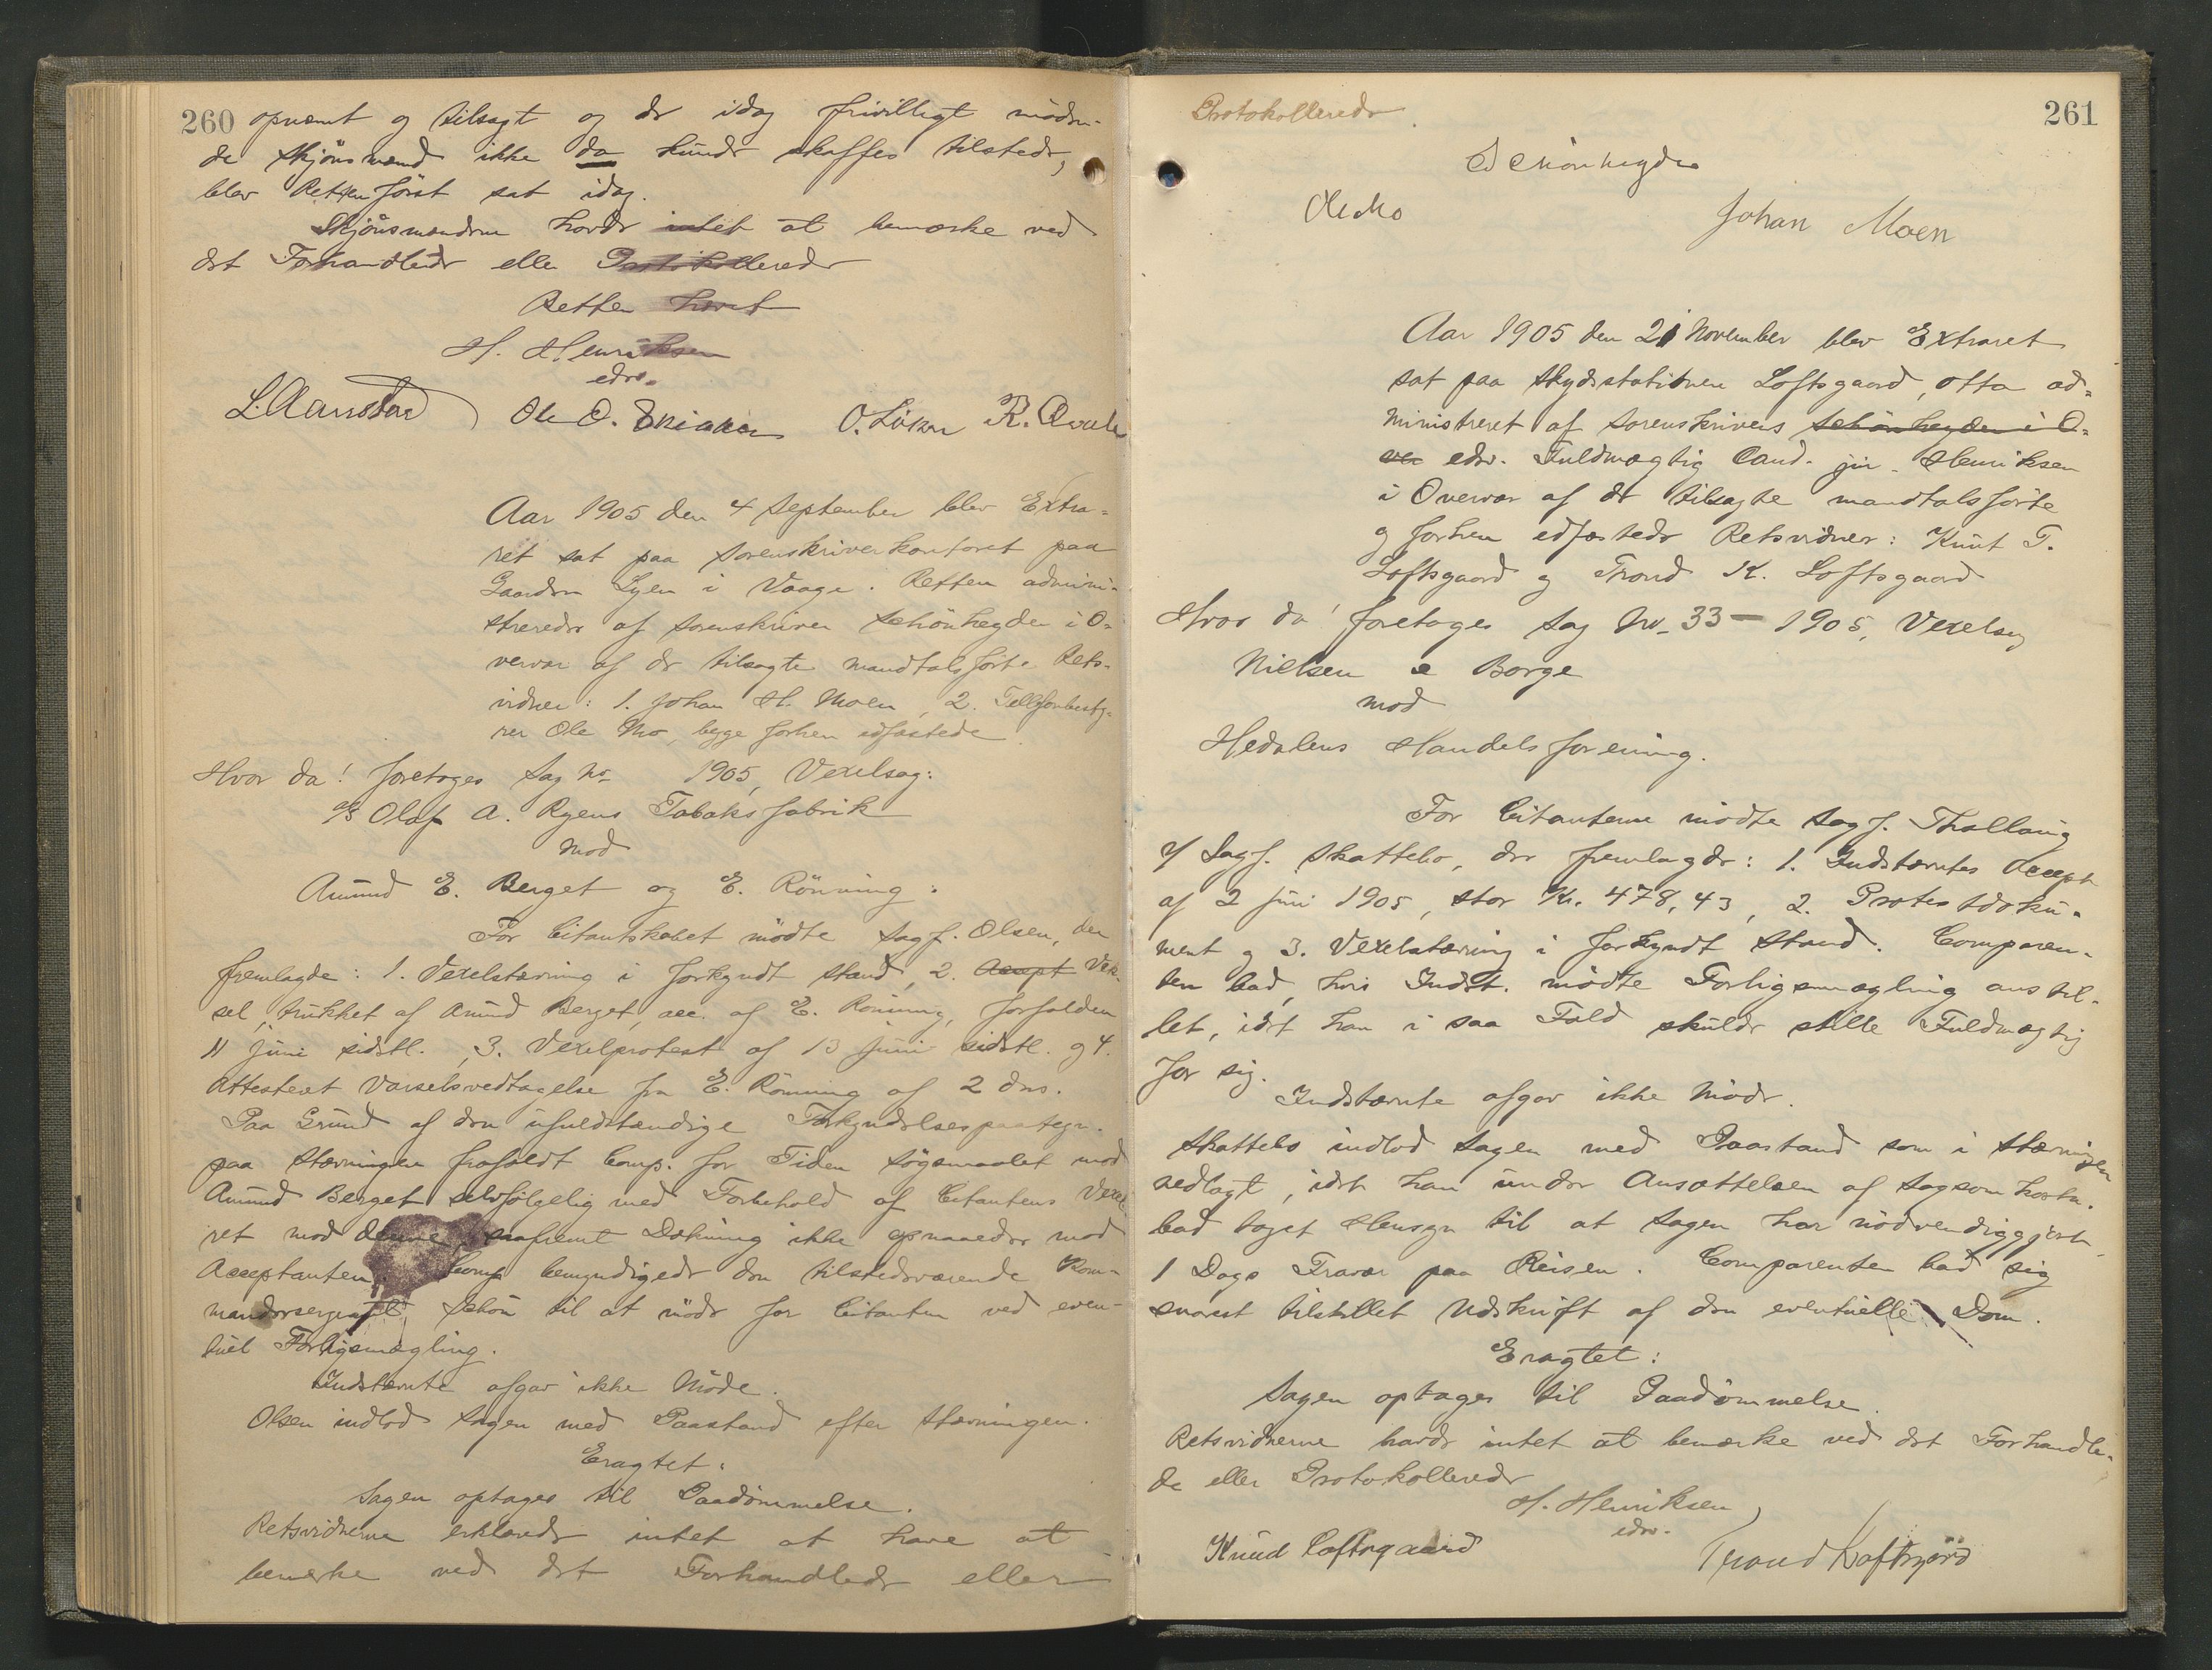 260 opnævnt og tilsagt og de idag frivilligt mödende
de Skjönsmænd ikke da kunde skaffes tilstede,
blev Retten först sat idag.
Skjönsmændene havde intet at bemærke ved
det Forhandlede eller Protokollerede
Retten hævet
H. Henriksen
edsv.
L. Aanstad Ole O. O. Löken R.
Aar 1905 den 4 September blev Extra-
ret sat paa Sorenskriverkontoret paa
Gaarden Syen i Vaage. Retten admini-
streredes af Sorenskriver Schönheyder i O-
vervær af de tilsagte mandtalsförte Rets-
vidner: 1. Johan H. Moen, 2. Telefonbesty-
rer Ole Mo, begge forhen edfæstede.
Hvor da! foretoges Sag No 1905, Vexelsag:
A/S Olaf A. Ryens Tobaksfabrik
mod
Amund E. Berget og E. Rönning.
For Citantskabet mödte Sagf. Olsen, der
fremlagde: 1. Vexelstævning i forkyndt Stand, 2. Accept Vek-
sel, trukket af Amund Berget, acc. af E. Rönning, forfalden
11 Juni sidstl., 3. Vexelprotest af 13 Juni sidstl. og 4.
Attesteret Varselsvedtagelse fra E. Rönning af 2 ds.
Paa Grund af den ufuldstændige Forkyndelsespaategn.
paa Stævningen frafaldt Comp. for Tiden Sögsmaalet mod
Amund Berget selvfölgelig med Forbehold af Citantens Vexel-
ret mod denne, saafremt Dækning ikke opnaaedes mod
Acceptanten. Comp. bemyndigede den tilstedeværende Kom-
mandersergeant Schou til at möde for Citanten ved even-
tuel Forligsmægling.
Indstævnte afgav ikke Möde.
Olsen indlod Sagen med Paastand efter Stævningen.
Eragtet:
Sagen optages til Paadömmelse.
Retsvidnerne erklærede intet at have at
bemærke ved det Forhandlede eller
Protokollerede. 261
Schönheyder
Ole Mo Johan Moen
Aar 1905 den 21 November blev Extraret
sat paa Skydsstationen Loftsgaard, Otta ad-
ministreret af Sorenskriverens Schönheyder i O-
ver edsv. Fuldmægtig Cand. jur. Henriksen
i Overvær af de tilsagte mandtalsförte
og forhen edfæstede Retsvidner: Knut T.
Loftsgaard og Trond K. Loftsgaard
Hvor da! foretoges Sag No. 33 - 1905, Vexelsag
Nielsen & Borge
mod
Hedalens Handelsforening.
For Citanterne mödte Sagf. Thallaug
f/ Sagf. Skattebo, der fremlagde: 1. Indstævntes Accept
af 2 Juni 1905, stor Kr. 478,43, 2. Protestdoku-
ment og 3. Vexelstævning i forkyndt Stand. Comparen-
ten bad, hvis Indst. mödte Forligsmægling anstil-
let, idet han i saa Fald skulde stille Fuldmægtig
for sig.
Indstævnte afgav ikke Möde.
Skattebo indlod Sagen med Paastand som i Stævningen
nedlagt, idet han under Ansættelsen af Sagsomkostn.
bad taget Hensyn til at Sagen har nödvendiggjort
1 Dags Fravær paa Reisen. Comparenten bad sig
snarest tilstillet Udskrift af den eventuelle Dom.
Eragtet:
Sagen optages til Paadömmelse.
Retsvidnerne havde intet at bemærke ved det Forhandle-
de eller Protokollerede
H. Henriksen
edsv.
Knud Loftsgaard Trond Loftsgård